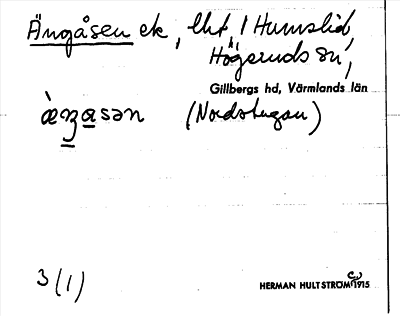 Ängåsen ek, lht, 1 Humslid,
Högeruds sn,
Gillbergs hd, Värmlands län
æ̀ŋasən (Nordstugan)
3 (1)
HERMAN HULTSTRÖM 1915